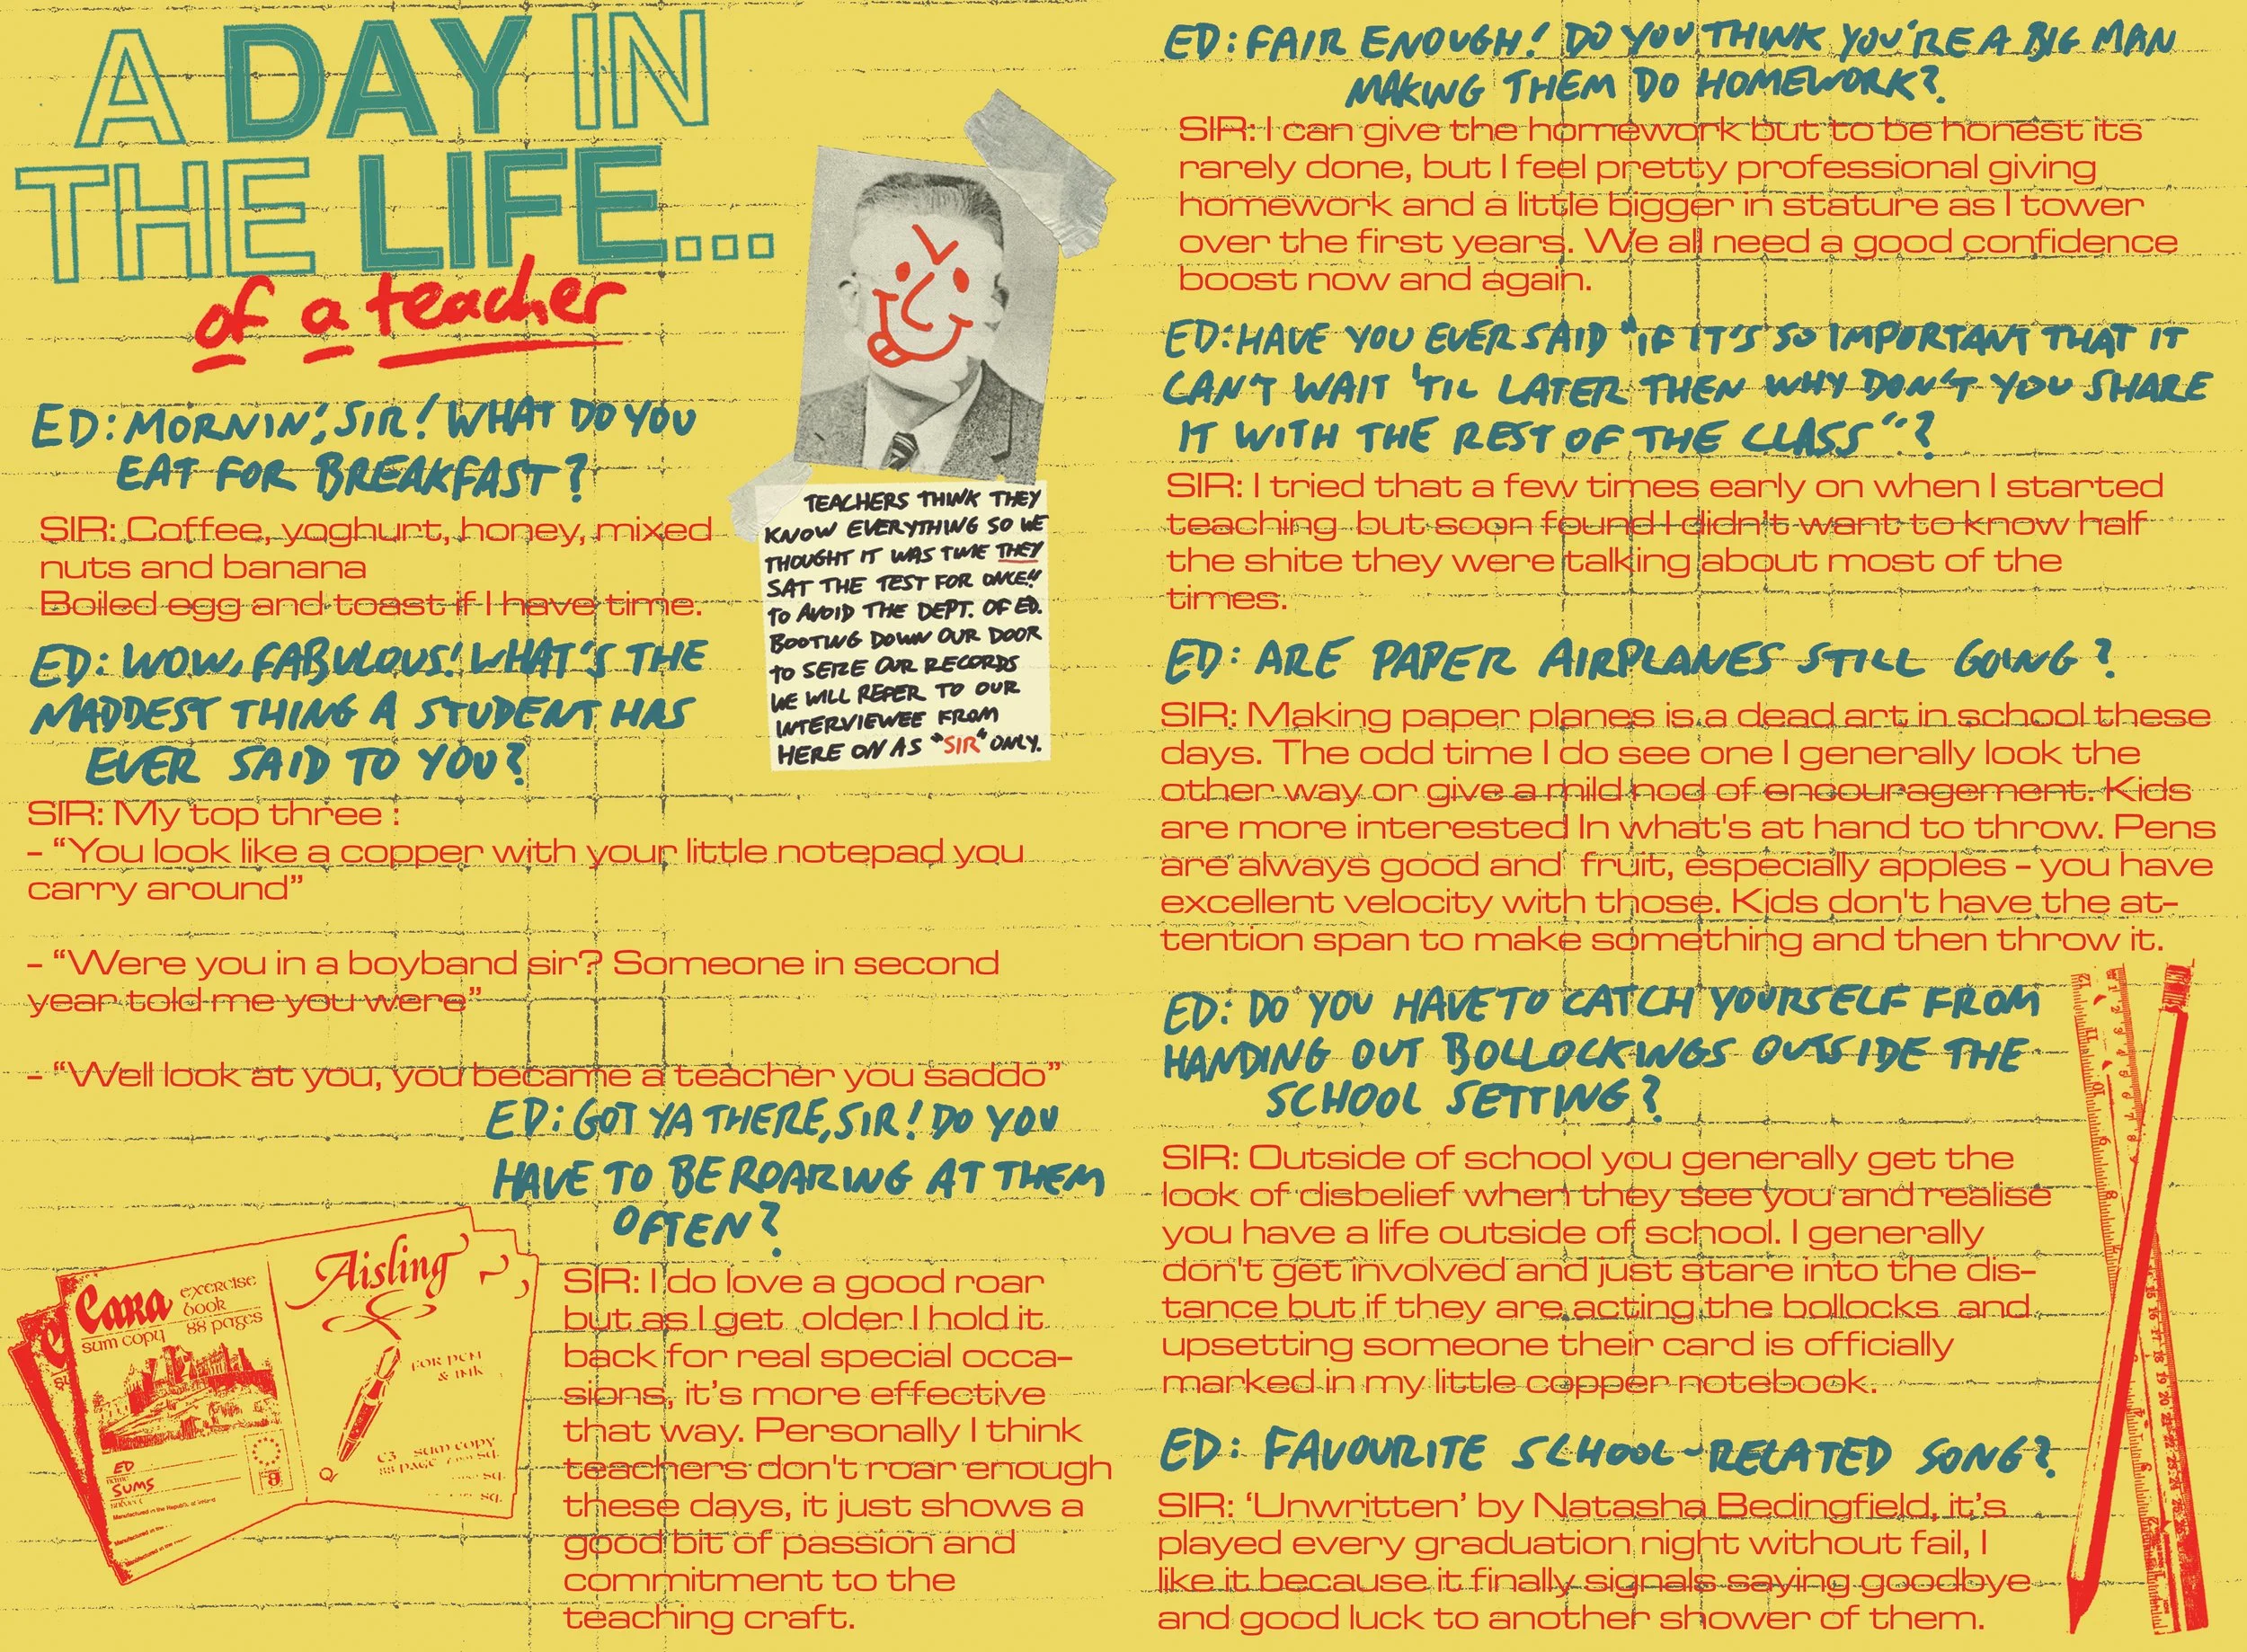 A DAY IN
THE LIFE...
of a teacher
ED: MORNIN', SIR! WHAT DO YOU
EAT FOR BREAKFAST?
SIR: Coffee, yoghurt, honey, mixed
nuts and banana
Boiled egg and toast if I have time.
TEACHERS THINK THEY
KNOW EVERYTHING SO WE
THOUGHT IT WAS TIME THEY
SAT THE TEST FOR ONCE!!
TO AVOID THE DEPT. OF ED.
BOOTING DOWN OUR DOOR
TO SEIZE OUR RECORDS
WE WILL REFER TO OUR
INTERVIEWEE FROM
HERE ON AS "SIR" ONLY.
ED: WOW, FABULOUS! WHAT'S THE
MADDEST THING A STUDENT HAS
EVER SAID TO YOU?
SIR: My top three :
- “You look like a copper with your little notepad you
carry around”
- “Were you in a boyband sir? Someone in second
year told me you were”
- “Well look at you, you became a teacher you saddo”
ED: GOT YA THERE, SIR! DO YOU
HAVE TO BE ROARING AT THEM
OFTEN?
SIR: I do love a good roar
but as I get older I hold it
back for real special occa-
sions, it’s more effective
that way. Personally I think
teachers don't roar enough
these days, it just shows a
good bit of passion and
commitment to the
teaching craft.
Cara
exercise
book
88 pages
sum copy
ED
SUMS
Aisling
FOR PEN
& INK
C3 SUM COPY
88 PAGE
sq.
sq.
ED: FAIR ENOUGH! DO YOU THINK YOU'RE A BIG MAN
MAKING THEM DO HOMEWORK?
SIR: I can give the homework but to be honest its
rarely done, but I feel pretty professional giving
homework and a little bigger in stature as I tower
over the first years. We all need a good confidence
boost now and again.
ED: HAVE YOU EVER SAID "IF IT'S SO IMPORTANT THAT IT
CAN'T WAIT 'TIL LATER THEN WHY DON'T YOU SHARE
IT WITH THE REST OF THE CLASS"?
SIR: I tried that a few times early on when I started
teaching but soon found I didn't want to know half
the shite they were talking about most of the
times.
ED: ARE PAPER AIRPLANES STILL GOING?
SIR: Making paper planes is a dead art in school these
days. The odd time I do see one I generally look the
other way or give a mild nod of encouragement. Kids
are more interested In what's at hand to throw. Pens
are always good and fruit, especially apples - you have
excellent velocity with those. Kids don't have the at-
tention span to make something and then throw it.
ED: DO YOU HAVE TO CATCH YOURSELF FROM
HANDING OUT BOLLOCKINGS OUTSIDE THE
SCHOOL SETTING?
SIR: Outside of school you generally get the
look of disbelief when they see you and realise
you have a life outside of school. I generally
don't get involved and just stare into the dis-
tance but if they are acting the bollocks and
upsetting someone their card is officially
marked in my little copper notebook.
ED: FAVOURITE SCHOOL-RELATED SONG?
SIR: ‘Unwritten’ by Natasha Bedingfield, it’s
played every graduation night without fail, I
like it because it finally signals saying goodbye
and good luck to another shower of them.